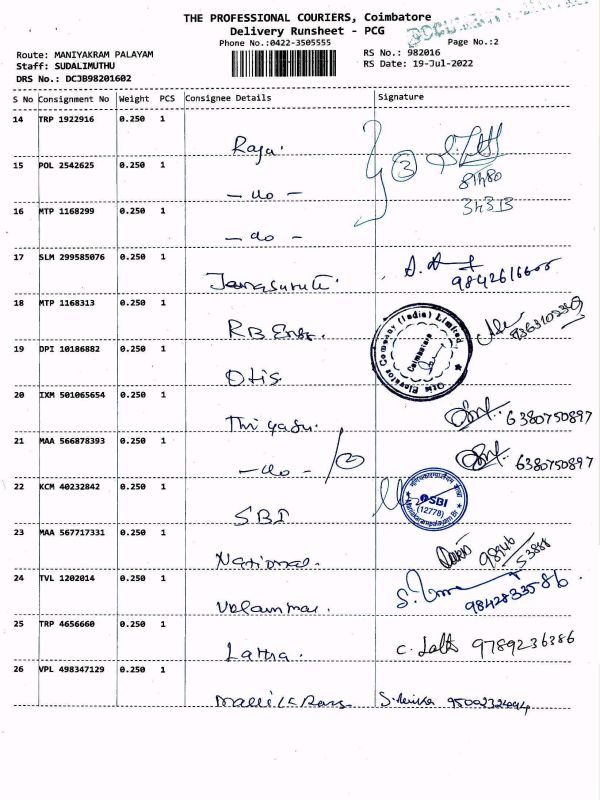 THE PROFESSIONAL COURIERS, Coimbatore
Delivery Runsheet - PCG
Phone No.:0422-3505555
Page No.:2
Route: MANIYAKRAM PALAYAM
RS No.: 982016
Staff: SUDALIMUTHU
RS Date: 19-Jul-2022
DRS No.: DCJB98201602
S No Consignment No Weight PCS Consignee Details Signature
14 TRP 1922916 0.250 1
Raja.
3
15 POL 2542625 0.250 1
- do -
16 MTP 1168299 0.250 1
- do -
17 SLM 299585076 0.250 1
18 MTP 1168313 0.250 1
RB Engg.
Otis Elevator Company (India) Limited.
Coimbatore
19 DPI 10186882 0.250 1
Otis
20 IXM 501065654 0.250 1
6380750897
21 MAA 566878393 0.250 1
- do - / 2
6380750897
22 KCM 40232842 0.250 1
SBI
SBI
(12778)
23 MAA 567717331 0.250 1
National.
24 TVL 1202014 0.250 1
9842833586
25 TRP 4656660 0.250 1
Latha.
9789236386
26 VPL 498347129 0.250 1